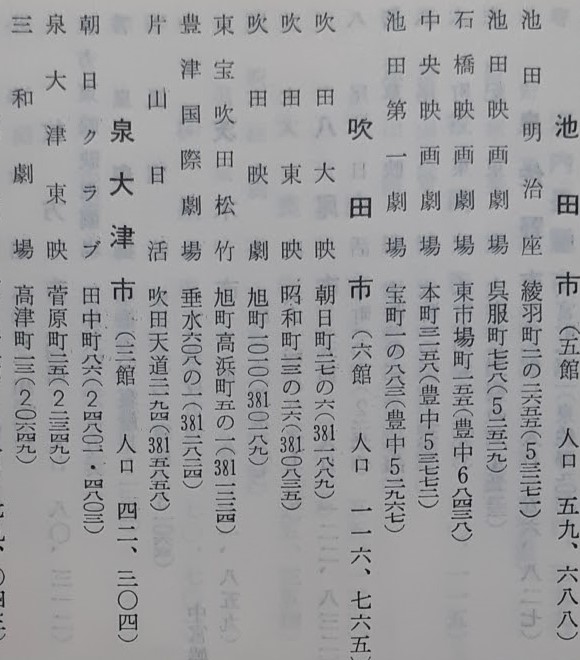 池田市(五館 人口 五九、六八八)
池田明治座 綾羽町二の二六五五(5三二七一)
池田映画劇場 呉服町七七八(5二五二九)
石橋映画劇場 東市場町一五五(豊中6八四三八)
中央映画劇場 本町三一五八(豊中5三七七二)
池田第一劇場 宝町一の八八三(豊中5二九六七)
吹田市(六館 人口 一一六、七六五)
吹田大映 朝日町二七の六(381一八八九)
吹田東映 昭和町三の二六(381〇八三五)
吹田映劇 旭町一〇一〇(381〇二八九)
東宝吹田松竹 旭町高浜町五の一(381一三三四)
豊津国際劇場 垂水六〇八の一(381二八二四)
片山日活 吹田天道二一九四(381五八五八)
泉大津市(三館 人口 四二、三〇四)
朝日クラブ 田中町八六(2四八〇一・四八〇三)
泉大津東映 菅原町二五(2二三四九)
三和劇場 高津町一三(2〇六四九)